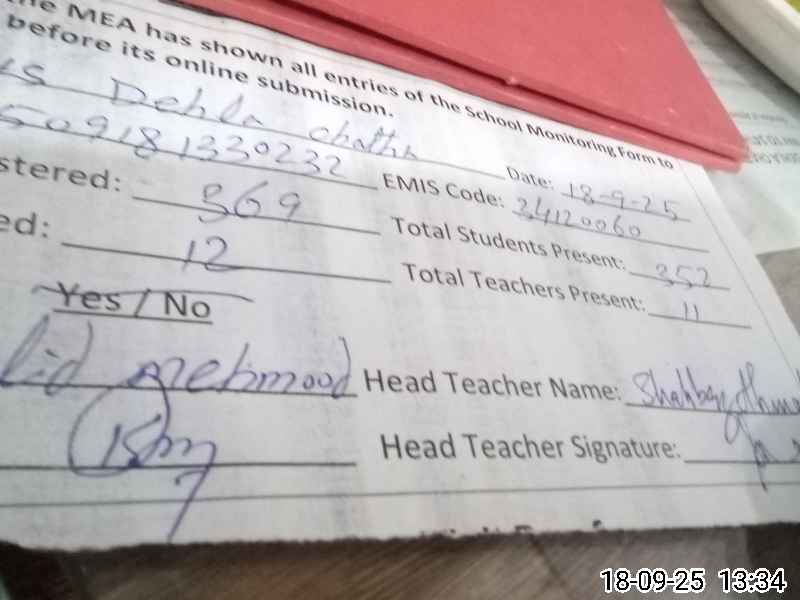 the MEA has shown all entries of the School Monitoring Form to
before its online submission.
Dehla chatha Date: 18-9-25
509181330232 EMIS Code: 34120060
stered: 369 Total Students Present: 352
ed: 12 Total Teachers Present: 11
Yes / No
lid mehmood Head Teacher Name: Shahbaz Ahmad
Head Teacher Signature:
18-09-25 13:34